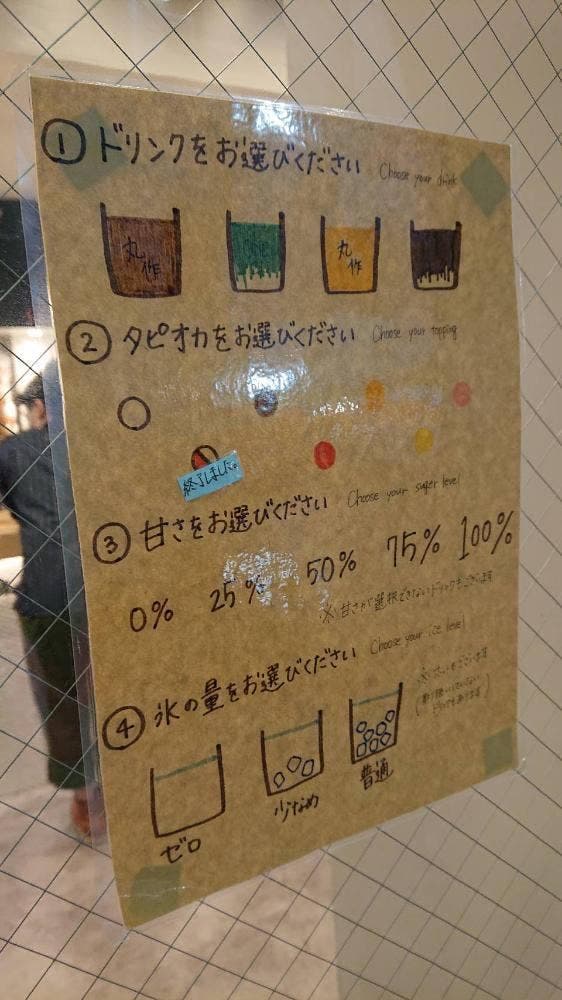 ① ドリンクをお選びください Choose your drink
丸作
丸作
② タピオカをお選びください Choose your topping
終了しました。
③ 甘さをお選びください Choose your suger level
0% 25% 50% 75% 100%
※甘さが選択できないドリンクもございます
④ 氷の量をお選びください Choose your ice level
ゼロ 少なめ 普通